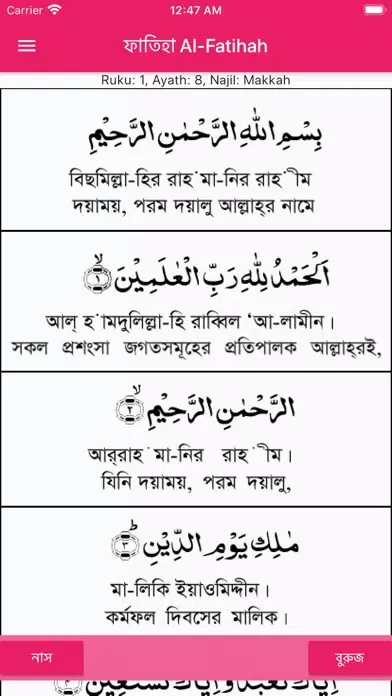 Carrier 12:47 AM
ফাতিহা Al-Fatihah
Ruku: 1, Ayath: 8, Najil: Makkah
بِسْمِ اللهِ الرَّحْمٰنِ الرَّحِيْمِ
বিছমিল্লা-হির রাহ'মা-নির রাহ'ীম
দয়াময়, পরম দয়ালু আল্লাহ্‌র নামে
اَلْحَمْدُ لِلّٰهِ رَبِّ الْعٰلَمِيْنَ ۙ﴿١﴾
আল্ হ'ামদুলিল্লা-হি রাব্বিল ‘আ-লামীন।
সকল প্রশংসা জগতসমূহের প্রতিপালক আল্লাহ্‌রই,
الرَّحْمٰنِ الرَّحِيْمِ ۙ﴿٢﴾
আর্‌রাহ'মা-নির রাহ'ীম।
যিনি দয়াময়, পরম দয়ালু,
مٰلِكِ يَوْمِ الدِّيْنِ ؕ﴿٣﴾
মা-লিকি ইয়াওমিদ্দীন।
কর্মফল দিবসের মালিক।
নাস বুরুজ